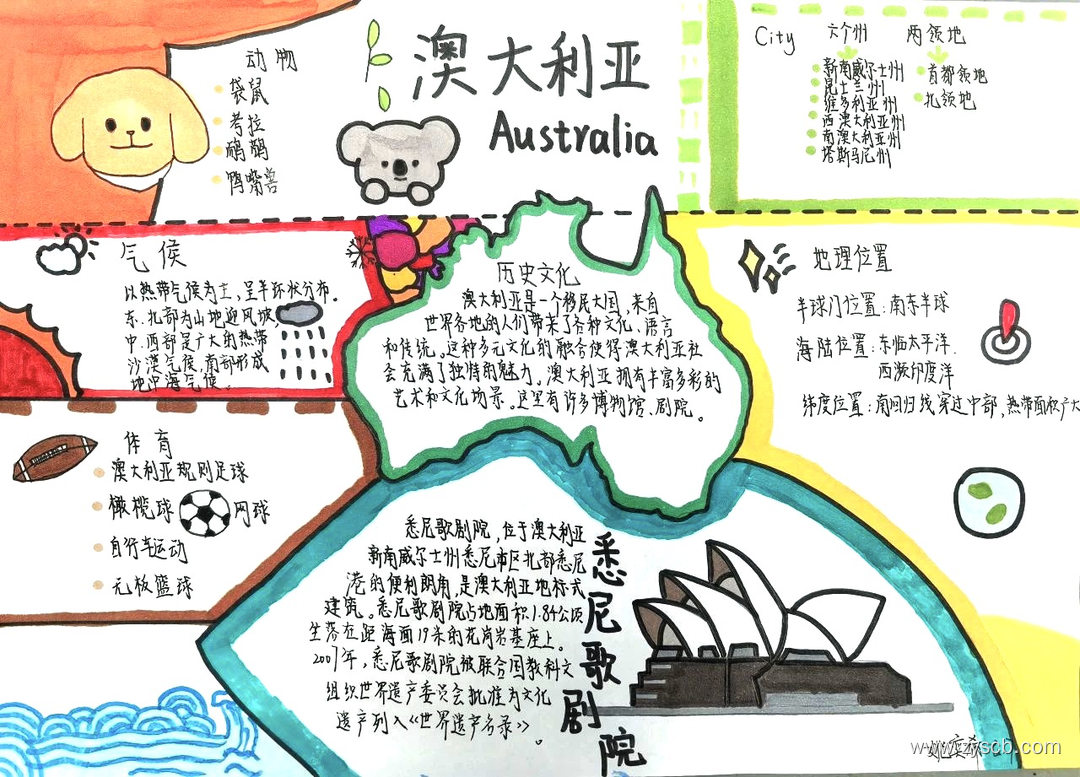 澳大利亚
Australia
动物
袋鼠
考拉
鸸鹋
鸭嘴兽
City
六个州
新南威尔士州
昆士兰州
维多利亚州
西澳大利亚州
南澳大利亚州
塔斯马尼州
两领地
首都领地
北领地
气候
以热带气候为主，呈半环状分布。
东、北部为山地迎风坡，
中、西部是广大的热带
沙漠气候，南部形成
地中海气候。
历史文化
澳大利亚是一个移民大国，来自
世界各地的人们带来了各种文化、语言
和传统。这种多元文化的融合使得澳大利亚社
会充满了独特的魅力。澳大利亚拥有丰富多彩的
艺术和文化场景。这里有许多博物馆、剧院。
地理位置
半球门位置：南东半球
海陆位置：东临太平洋.
西濒印度洋
纬度位置：南回归线穿过中部，热带面积广大
体育
澳大利亚规则足球
橄榄球
网球
自行车运动
无板篮球
悉尼歌剧院，位于澳大利亚
新南威尔士州悉尼市区北部悉尼
港的便利朗角，是澳大利亚地标式
建筑。悉尼歌剧院占地面积1.84公顷
生落在距海面19米的花岗岩基座上。
2007年，悉尼歌剧院被联合国教科文
组织世界遗产委员会批准为文化
遗产列入《世界遗产名录》。
悉尼歌剧院
www.zyscb.com